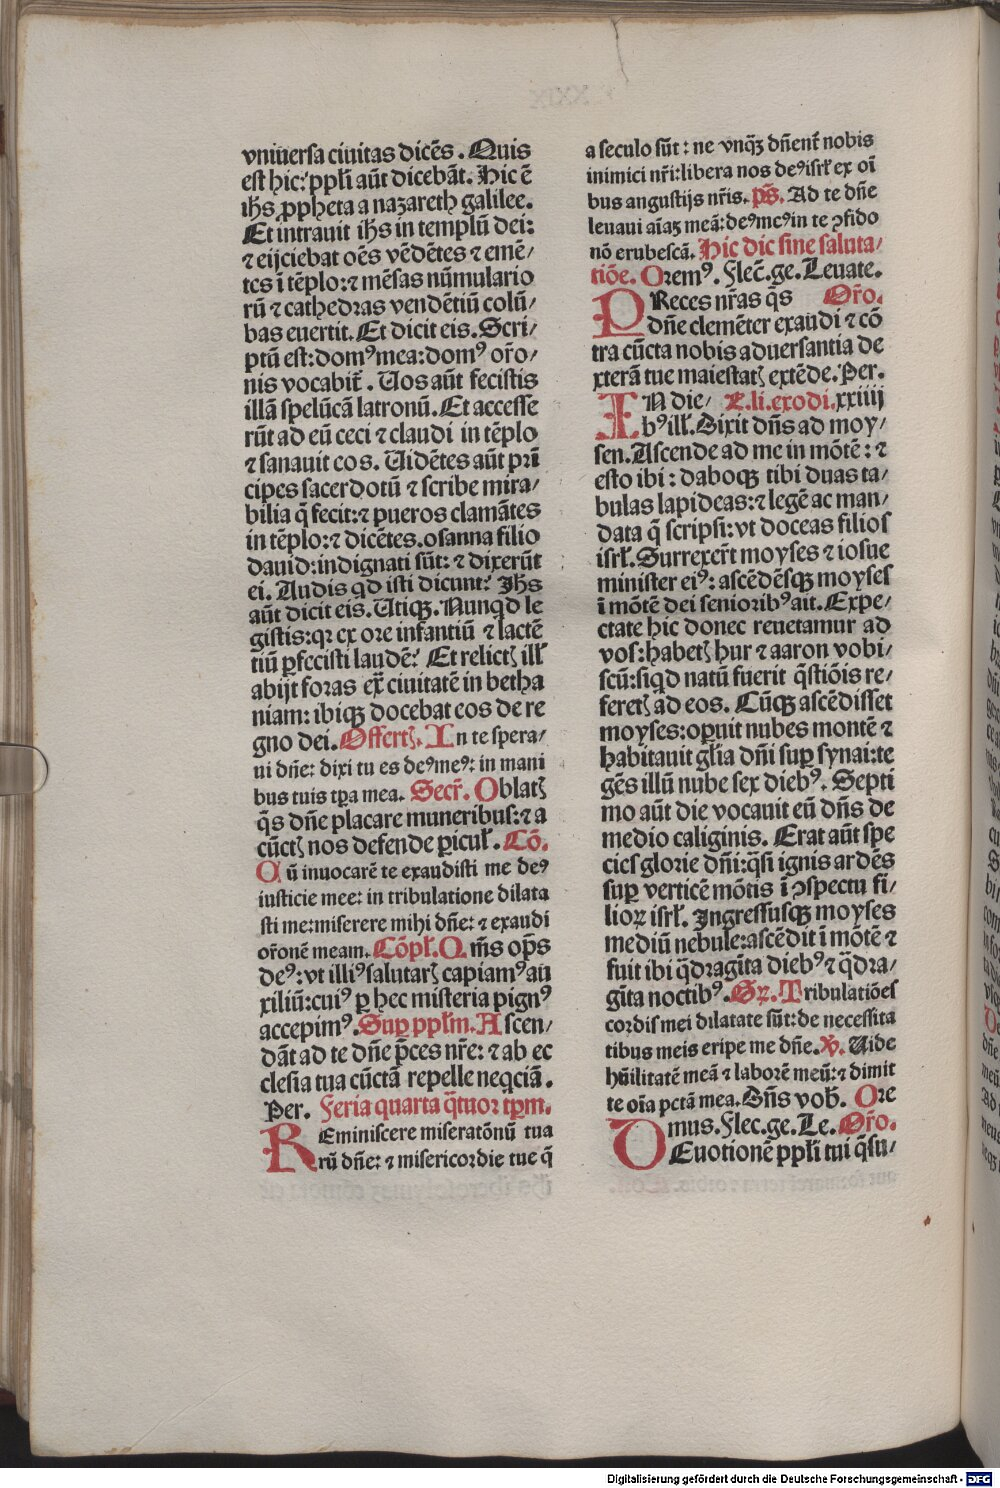 vniuersa ciuitas dicēs. Quis
est hic? ppłi aūt dicebāt. Hic ē
ihs ꝓpheta a nazareth galilee.
Et intrauit ihs in templū dei:
⁊ eijciebat oēs vēdētes ⁊ emē/
tes ī tēplo: ⁊ mēsas nūmulario
rū ⁊ cathedras vendētiū colū/
bas euertit. Et dicit eis. Scri/
ptū est: domꝰ mea: domꝰ or̄o/
nis vocabit̄. Uos aūt fecistis
illā spelūcā latronū. Et accesse
rūt ad eū ceci ⁊ claudi in tēplo
⁊ sanauit eos. Uidētes aūt pri
cipes sacerdotū ⁊ scribe mira/
bilia q̄ fecit: ⁊ pueros clamātes
in tēplo: ⁊ dicētes. osanna filio
dauid: indignati sūt: ⁊ dixerūt
ei. Audis qd isti dicunt? Ihs
aūt dicit eis. Utiqꝫ. Nunqd le
gistis: qꝛ ex ore infantiū ⁊ lactē
tiū ꝑfecisti laudē? Et relictꝭ ill'
abijt foras ex̄ ciuitatē in betha
niam: ibiqꝫ docebat eos de re
gno dei. Offertꝭ. In te spera/
ui dn̄e: dixi tu es deꝰ meꝰ: in mani
bus tuis tꝑa mea. Secr̄. Oblatꝭ
q̄s dn̄e placare muneribus: ⁊ a
cūctꝭ nos defende ꝑicuł. Cō.
Cū inuocarē te exaudisti me deꝰ
iusticie mee: in tribulatione dilata
sti me: miserere mihi dn̄e: ⁊ exaudi
or̄onē meam. Cōpł. Om̄s op̄s
deꝰ: vt illiꝰ salutarꝭ capiamꝰ au
xiliū: cuiꝰ ꝑ hec misteria pignꝰ
accepimꝰ. Suꝑ ppłm. Ascen/
dāt ad te dn̄e p̄ces nr̄e: ⁊ ab ec
clesia tua cūctā repelle neqciā.
Per. Feria quarta q̄tuor tꝑm.
Reminiscere miseratōnū tua
rū dn̄e: ⁊ misericordie tue q̄
a seculo sūt: ne vnqꝫ dn̄ent̄ nobis
inimici nr̄i: libera nos deꝰ isrł ex oī
bus angustijs nr̄is. ps̄. Ad te dn̄e
leuaui aīaꝫ meā: deꝰ meꝰ in te ꝯfido
nō erubescā. Hic dic sine saluta/
tiōe. Oremꝰ. Flec̄. ge. Leuate.
PReces nr̄as q̄s Or̄o.
dn̄e clemēter exaudi ⁊ cō
tra cūcta nobis aduersantia de
xterā tue maiestatꝭ extēde. Per.
IN die/ L. li. exodi. xxiiij
bꝰ ill'. Dixit dn̄s ad moy/
sen. Ascende ad me in mōtē: ⁊
esto ibi: daboqꝫ tibi duas ta/
bulas lapideas: ⁊ legē ac man/
data q̄ scripsi: vt doceas filios
isrł. Surrexer̄t moyses ⁊ iosue
minister eiꝰ: ascēdēsqꝫ moyses
ī mōtē dei senioribꝰ ait. Expe/
ctate hic donec reuetamur ad
vos: habetꝭ hur ⁊ aaron vobi/
scū: siqd natū fuerit q̄stiōis re/
feretꝭ ad eos. Cūqꝫ ascēdisset
moyses: oꝑuit nubes montē ⁊
habitauit gl̄ia dn̄i suꝑ synai: te
gēs illū nube sex diebꝰ. Septi
mo aūt die vocauit eū dn̄s de
medio caliginis. Erat aūt spe
cies glorie dn̄i: q̄si ignis ardēs
suꝑ verticē mōtis ī ꝯspectu fi/
lioꝝ isrł. Ingressusqꝫ moyses
mediū nebule: ascēdit ī mōtē ⁊
fuit ibi q̄dragīta diebꝰ ⁊ q̄dra/
gīta noctibꝰ. Gr̄. Tribulatiōes
cordis mei dilatate sūt: de necessita
tibus meis eripe me dn̄e. ꝟ. Uide
hūilitatē meā ⁊ laborē meū: ⁊ dimit
te oīa pctā mea. Dn̄s vob̄. Ore
mus. Flec. ge. Le. Or̄o.
DEuotionē ppłi tui q̄su/
Digitalisierung gefördert durch die Deutsche Forschungsgemeinschaft - DFG